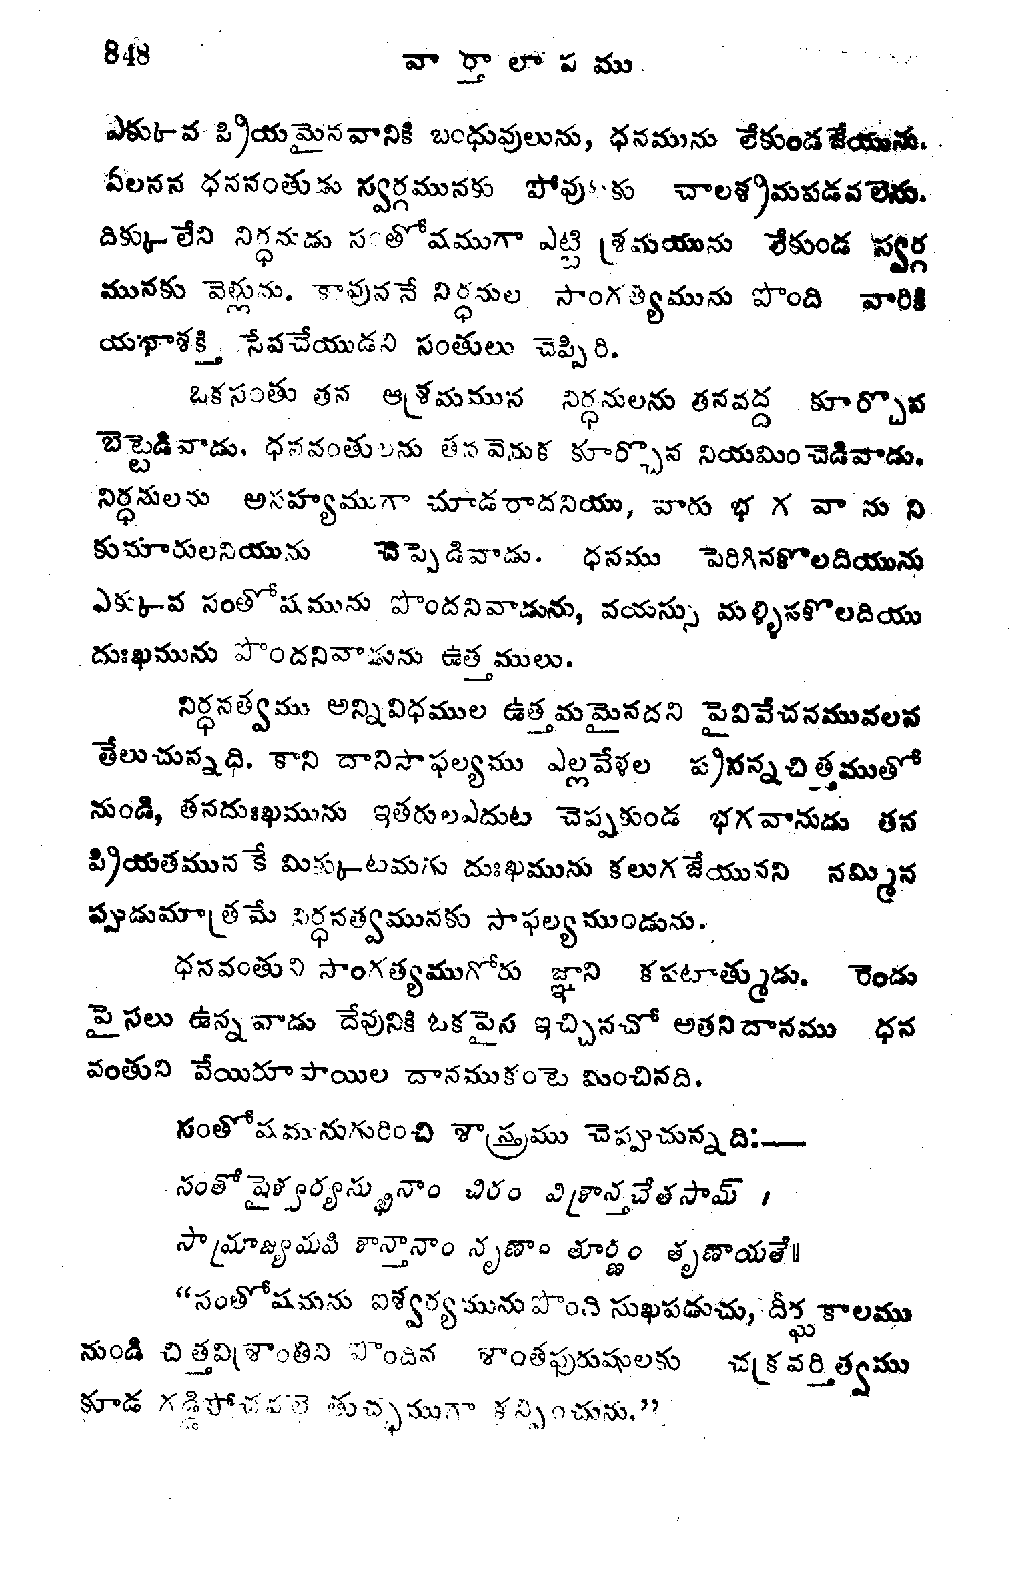 848
వా ర్తా లా ప ము
ఎక్కువ ప్రియమైనవానికి బంధువులును, ధనమును లేకుండజేయును.
ఏలనన ధనవంతుడు స్వర్గమునకు పోవుటకు చాలశ్రమపడవలెను.
దిక్కులేని నిర్ధనుడు సంతోషముగా ఎట్టి శ్రమయును లేకుండ స్వర్గ
మునకు వెళ్లును. కావుననే నిర్ధనుల సాంగత్యమును పొంది వారికి
యథాశక్తి సేవచేయుడని సంతులు చెప్పిరి.
ఒకసంతు తన ఆశ్రమమున నిర్ధనులను తనవద్ద కూర్చొన
బెట్టెడివాడు. ధనవంతులను తనవెనుక కూర్చొన నియమించెడివాడు.
నిర్ధనులను అసహ్యముగా చూడరాదనియు, వారు భ గ వా ను ని
కుమారులనియును చెప్పెడివాడు. ధనము పెరిగినకొలదియును
ఎక్కువ సంతోషమును పొందనివాడును, వయస్సు మళ్ళినకొలదియు
దుఃఖమును పొందనివాడును ఉత్తములు.
నిర్ధనత్వము అన్నివిధముల ఉత్తమమైనదని పైవివేచనమువలన
తేలుచున్నది. కాని దానిసాఫల్యము ఎల్లవేళల ప్రసన్నచిత్తముతో
నుండి, తనదుఃఖమును ఇతరులఎదుట చెప్పకుండ భగవానుడు తన
ప్రియతమునకే మిక్కుటమగు దుఃఖమును కలుగజేయునని నమ్మిన
ప్పుడుమాత్రమే నిర్ధనత్వమునకు సాఫల్యముండును.
ధనవంతుని సాంగత్యముగోరు జ్ఞాని కపటాత్ముడు. రెండు
పైసలు ఉన్నవాడు దేవునికి ఒకపైస ఇచ్చినచో అతనిదానము ధన
వంతుని వేయిరూపాయిల దానముకంటె మించినది.
సంతోషమునుగురించి శాస్త్రము చెప్పుచున్నది:—
సంతోషైశ్వర్యసుఖినాం చిరం విశ్రాన్తచేతసామ్ ।
సామ్రాజ్యమపి శాన్తానాం నృణాం తూర్ణం తృణాయతే॥
“సంతోషమను ఐశ్వర్యమును పొంది సుఖపడుచు, దీర్ఘకాలము
నుండి చిత్తవిశ్రాంతిని పొందిన శాంతపురుషులకు చక్రవర్తిత్వము
కూడ గడ్డిపోచవలె తుచ్ఛముగా కన్పించును.”